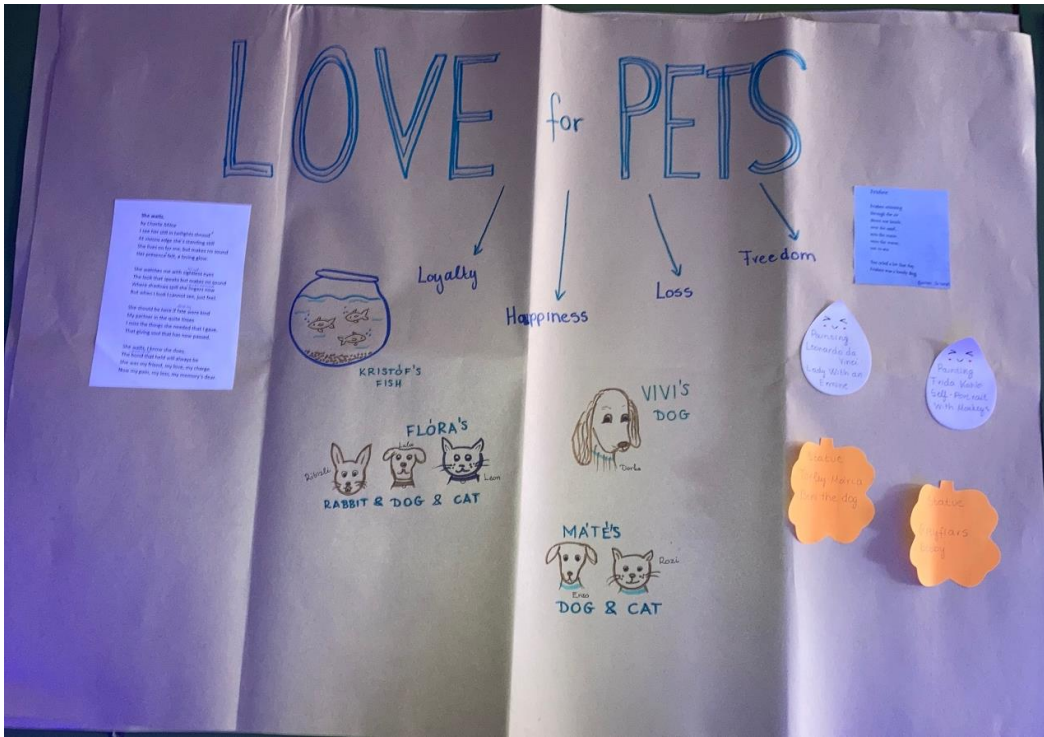 LOVE for PETS
Loyalty
Happiness
Loss
Freedom
She waits
By Charlie Milne
I see her still in twilights shroud
At visions edge she's standing still
She lives so far me, but makes no sound
Her presence felt, a loving
She watches me with sightless eyes
The look that speaks but makes no sound
Where shadows spill she lingers now
But when I look I cannot see, just feel
She should be here if fate were kind
My partner in the quite times
I miss the things she needed that I gave.
That giving soul that has now passed.
She waits, I know she does.
The bond that held still always be
She was my friend, my love, my charge
Now my pain, my loss, my memory's dear
KRISTÓF'S
FISH
FLÓRA'S
Lulu
Leon
RABBIT & DOG & CAT
VIVI'S
DOG
MÁTÉ'S
Rozi
Enzo
DOG & CAT
through the air
Painting
Leonardo da
Vinci
Lady With an
Ermine
Painting
Frida Kahlo
Self-Portrait
With Monkeys
Statue
the dog
Statue